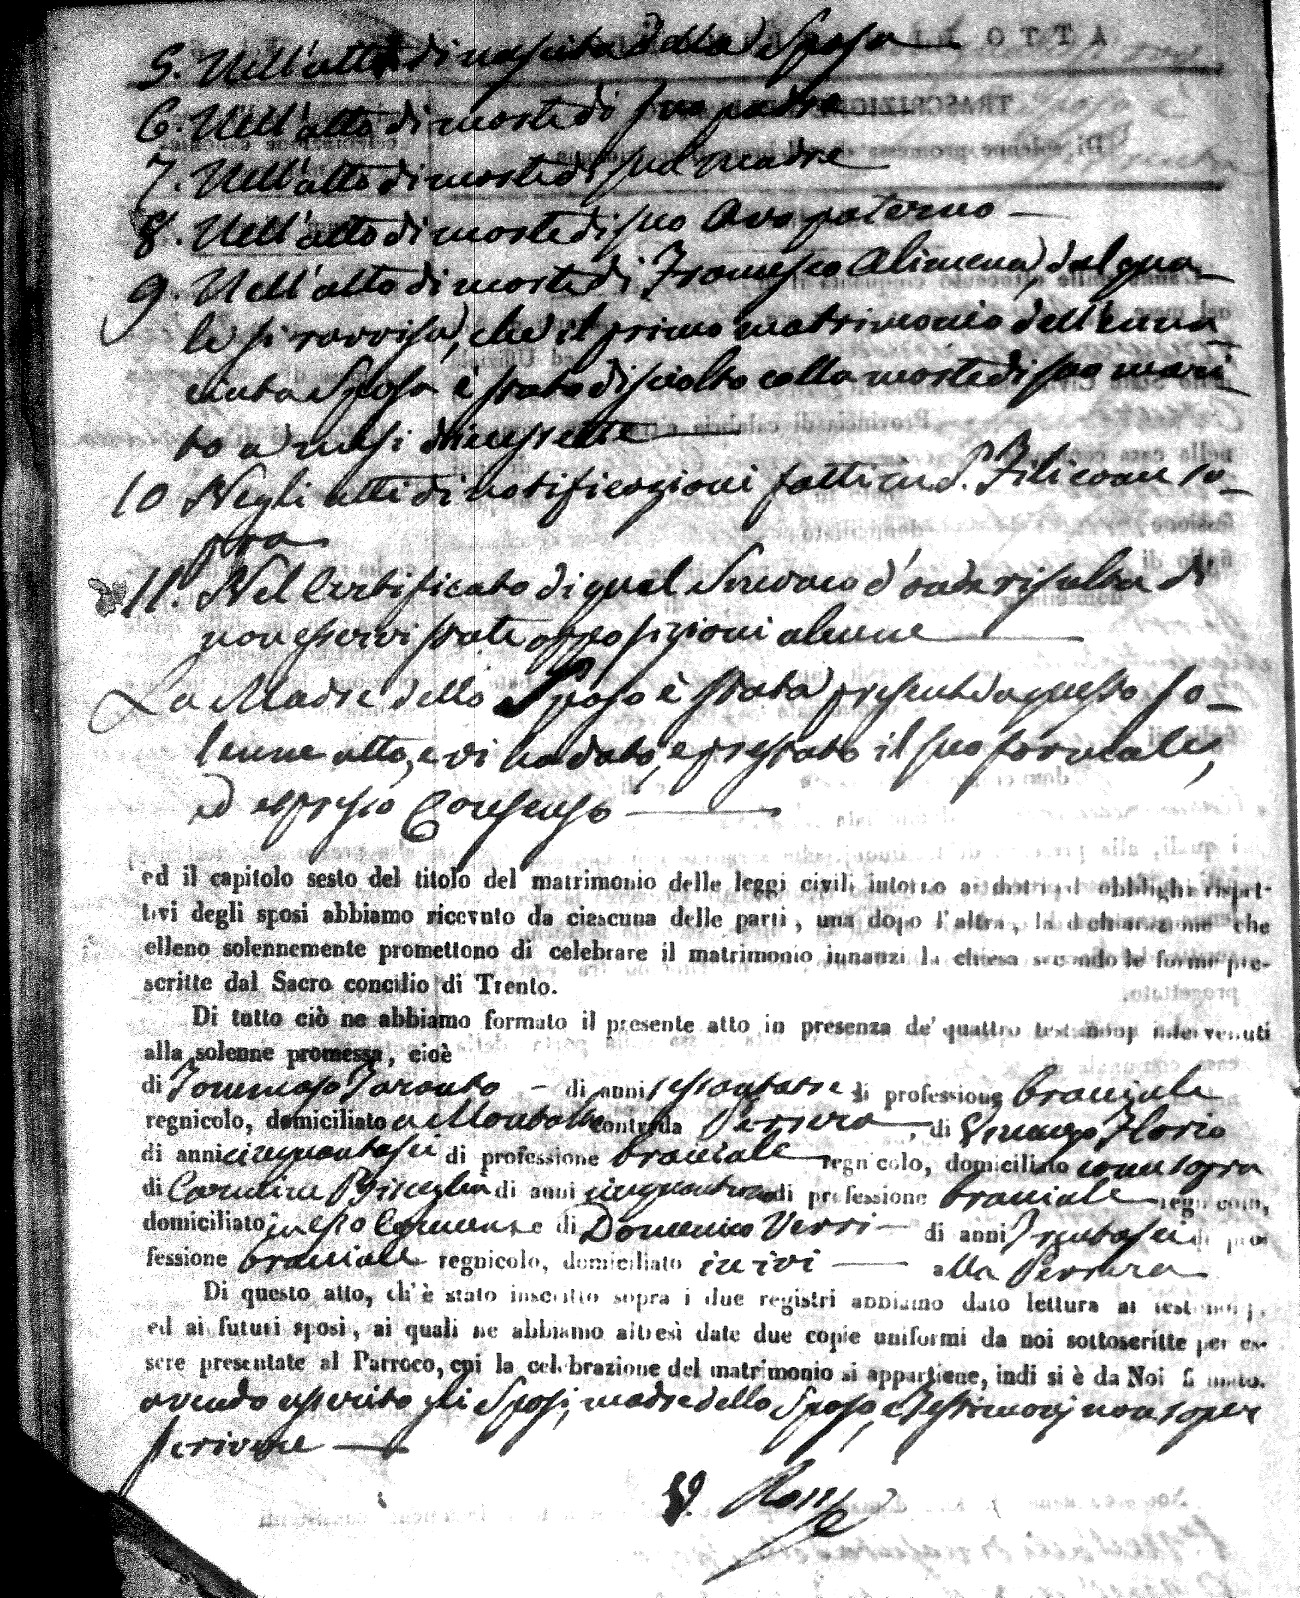 5. Nell'atto di nascita della Sposa
6. Nell'atto di morte di suo padre
7. Nell'atto di morte di sua madre
8. Nell'atto di morte di suo Avo paterno
9. Nell'atto di morte di Francesco Alimena, dal qua-
le si ravvisa, che il primo matrimonio dell'enun
ciata Sposa è stato disciolto colla morte di suo mari
to a mesi
10 Negli atti di notificazioni fatti in S. Fili come so-
pra
11. Nel Certificato di quel Sindaco d'onde risulta di
non esservi state opposizioni alcune
La Madre dello Sposo è stata presente a questo so-
lenne atto, e vi ha dato, e prestato il suo formale,
ed espresso Consenso
ed il capitolo sesto del titolo del matrimonio delle leggi civili intorno ai dritti ed obblighi rispet-
tivi degli sposi abbiamo ricevuto da ciascuna delle parti, una dopo l'altra, la dichiarazione che
elleno solennemente promettono di celebrare il matrimonio innanzi la chiesa secondo le forme pre-
scritte dal Sacro concilio di Trento.
Di tutto ciò ne abbiamo formato il presente atto in presenza de' quattro testimonj intervenuti
alla solenne promessa, cioè
di Tommaso Taranto di anni sessantatre di professione bracciale
regnicolo, domiciliato a Montalto contrada Perrera, di Vincenzo Florio
di anni cinquantasei di professione bracciale regnicolo, domiciliato come sopra
di Carmine Bisceglia di anni di professione bracciale regnicolo,
domiciliato in esso Comune e di Domenico Verri di anni trentasei di pro
fessione bracciale regnicolo, domiciliato in ivi alla Perrera
Di questo atto, ch'è stato inscritto sopra i due registri abbiamo dato lettura ai testimonj,
ed ai futuri sposi, ai quali ne abbiamo altresì date due copie uniformi da noi sottoscritte per es-
sere presentate al Parroco, cui la celebrazione del matrimonio si appartiene, indi si è da Noi firmato.
avendo asserito gli Sposi, madre dello Sposo, e Testimonj non saper
scrivere